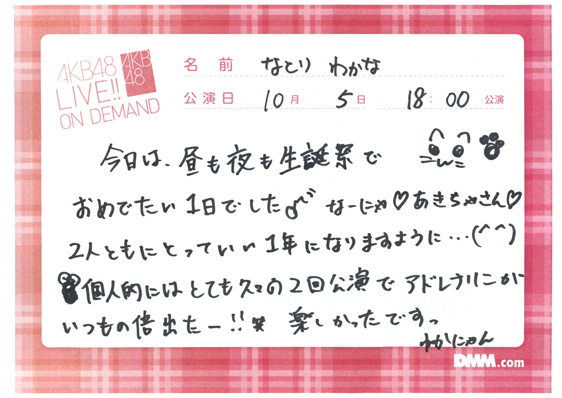 AKB48
LIVE!!
ON DEMAND
AKB
48
名前 なとり わかな
公演日 10月 5日 18:00 公演
今日は、昼も夜も生誕祭で
おめでたい1日でした♪ なーにゃ♡あきちゃさん♡
2人ともにとっていい1年になりますように…(^^)
個人的にはとても久々の2回公演でアドレナリンが
いつもの倍出たー!! 楽しかったですっ
わかにゃん
DMM.com